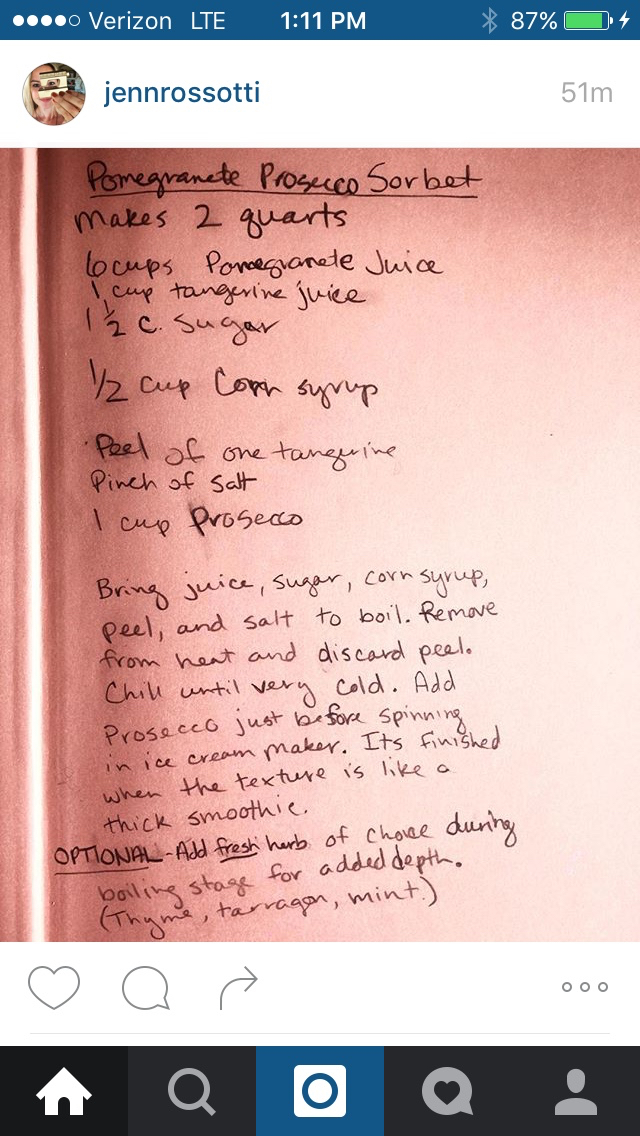 Verizon LTE 1:11 PM 87%
jennrossotti 51m
Pomegranete Prosecco Sorbet
Makes 2 quarts
6 cups Pomegranete Juice
1 cup tangerine juice
1 1/2 c. Sugar
1/2 cup Corn syrup
Peel of one tangerine
Pinch of Salt
1 cup Prosecco
Bring juice, sugar, corn syrup,
peel, and salt to boil. Remove
from heat and discard peel.
Chill until very cold. Add
Prosecco just before spinning
in ice cream maker. Its finished
when the texture is like a
thick smoothie.
OPTIONAL - Add fresh herb of choice during
boiling stage for added depth.
(Thyme, tarragon, mint.)